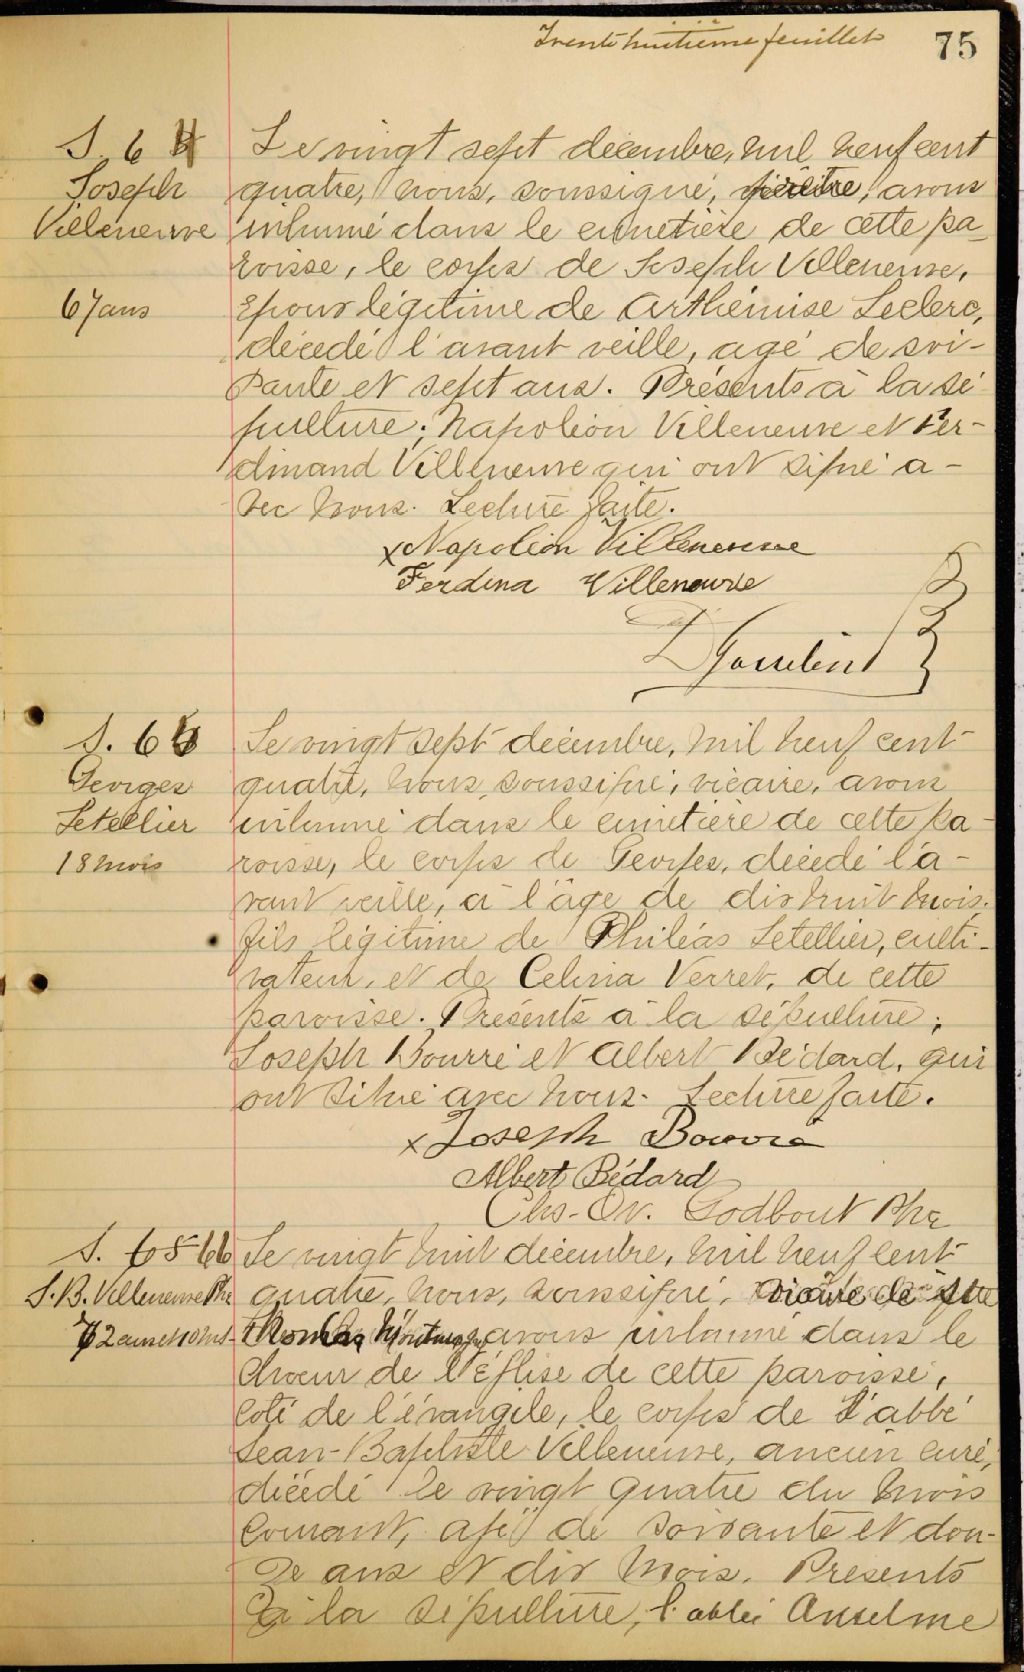 Trente huitième feuillet
75
S. 64
Joseph
Villeneuve
67 ans
Le vingt sept décembre, mil neuf cent
quatre, nous, soussigné, prêtre, avons
inhumé dans le cimetière de cette pa-
roisse, le corps de Joseph Villeneuve,
époux légitime de Arthémise Leclerc,
décédé l'avant veille, agé de soi-
xante et sept ans. Présents à la sé-
pulture; Napoléon Villeneuve et Fer-
dinand Villeneuve qui ont signé a-
vec nous. Lecture faite.
x Napoléon Villeneuve
Ferdina Villeneuve
D Gosselin
S. 65
Georges
Letellier
18 mois
Le vingt sept décembre, mil neuf cent
quatre, nous, soussigné, vicaire, avons
inhumé dans le cimetière de cette pa-
roisse, le corps de Georges, décédé l'a-
vant veille, à l'âge de dix huit mois.
fils légitime de Philéas Letellier, culti-
vateur, et de Celina Verret, de cette
paroisse. Présents à la sépulture;
Joseph Bourré et Albert Bédard, qui
ont signé avec nous. Lecture faite.
x Joseph Bourré
Albert Bédard
Chs-Ov. Godbout Ptre
S. 65 66
J. B. Villeneuve Ptre
72 ans et 10 ms
Le vingt huit décembre, mil neuf cent
quatre, nous, soussigné,
avons inhumé dans le
choeur de l'église de cette paroisse,
coté de l'évangile, le corps de l'abbé
Jean-Baptiste Villeneuve, ancien curé,
décédé le vingt quatre du mois
courant, agé de soixante et dou-
ze ans et dix mois. Présents
à la sépulture, l'abbé Anselme